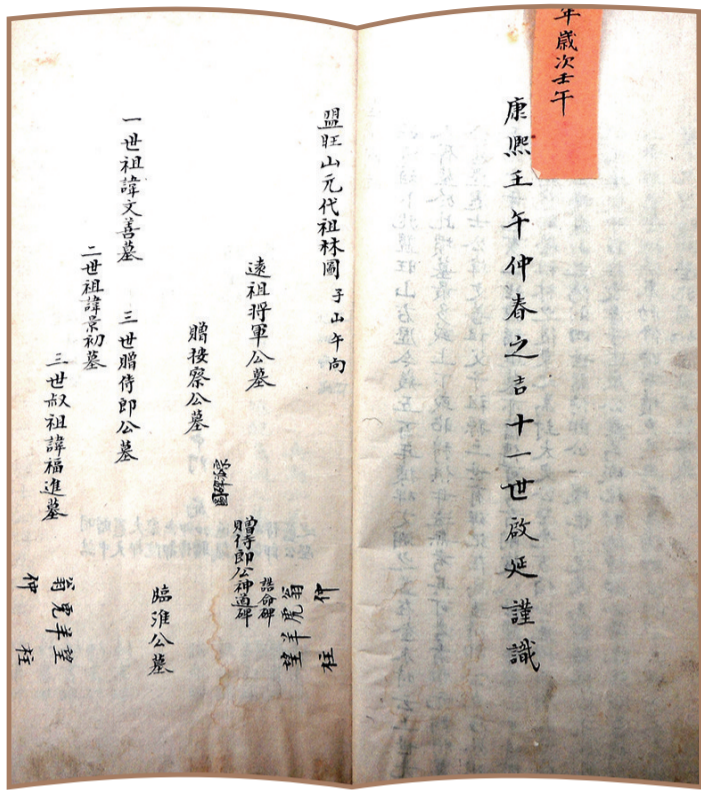 年歲次壬午
康熙壬午仲春之吉十一世啟延謹識
盟旺山元代祖林圖 子山午向
遠祖將軍公墓
贈按察公墓
贈侍郎公神道碑
誥命碑
翁虎羊望
仲 柱
臨淮公墓
一世祖諱文善墓
三世贈侍郎公墓
二世祖諱景初墓
三世叔祖諱福進墓
翁虎羊望
仲 柱